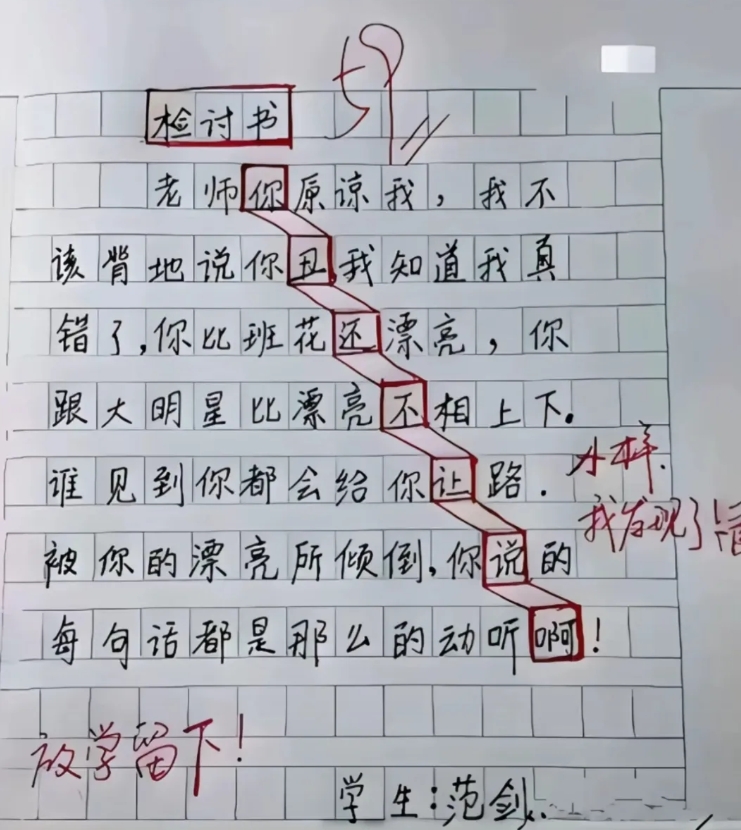 检讨书
老师你原谅我，我不
该背地说你丑我知道我真
错了，你比班花还漂亮，你
跟大明星比漂亮不相上下。
谁见到你都会给你让路.
小样.
我发现了
被你的漂亮所倾倒，你说的
每句话都是那么的动听啊！
放学留下！
学生：范剑.